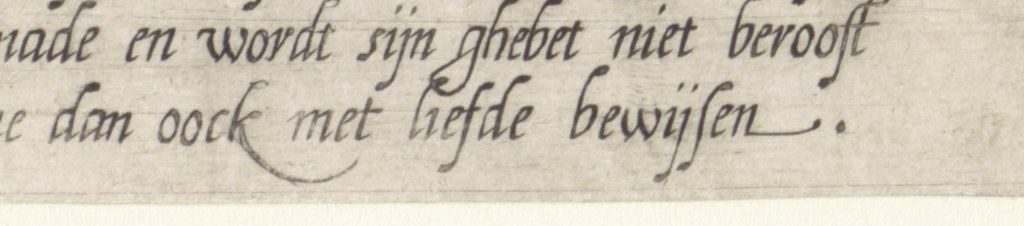 en wordt sijn ghebet niet berooft
dan oock met liefde bewijsen .